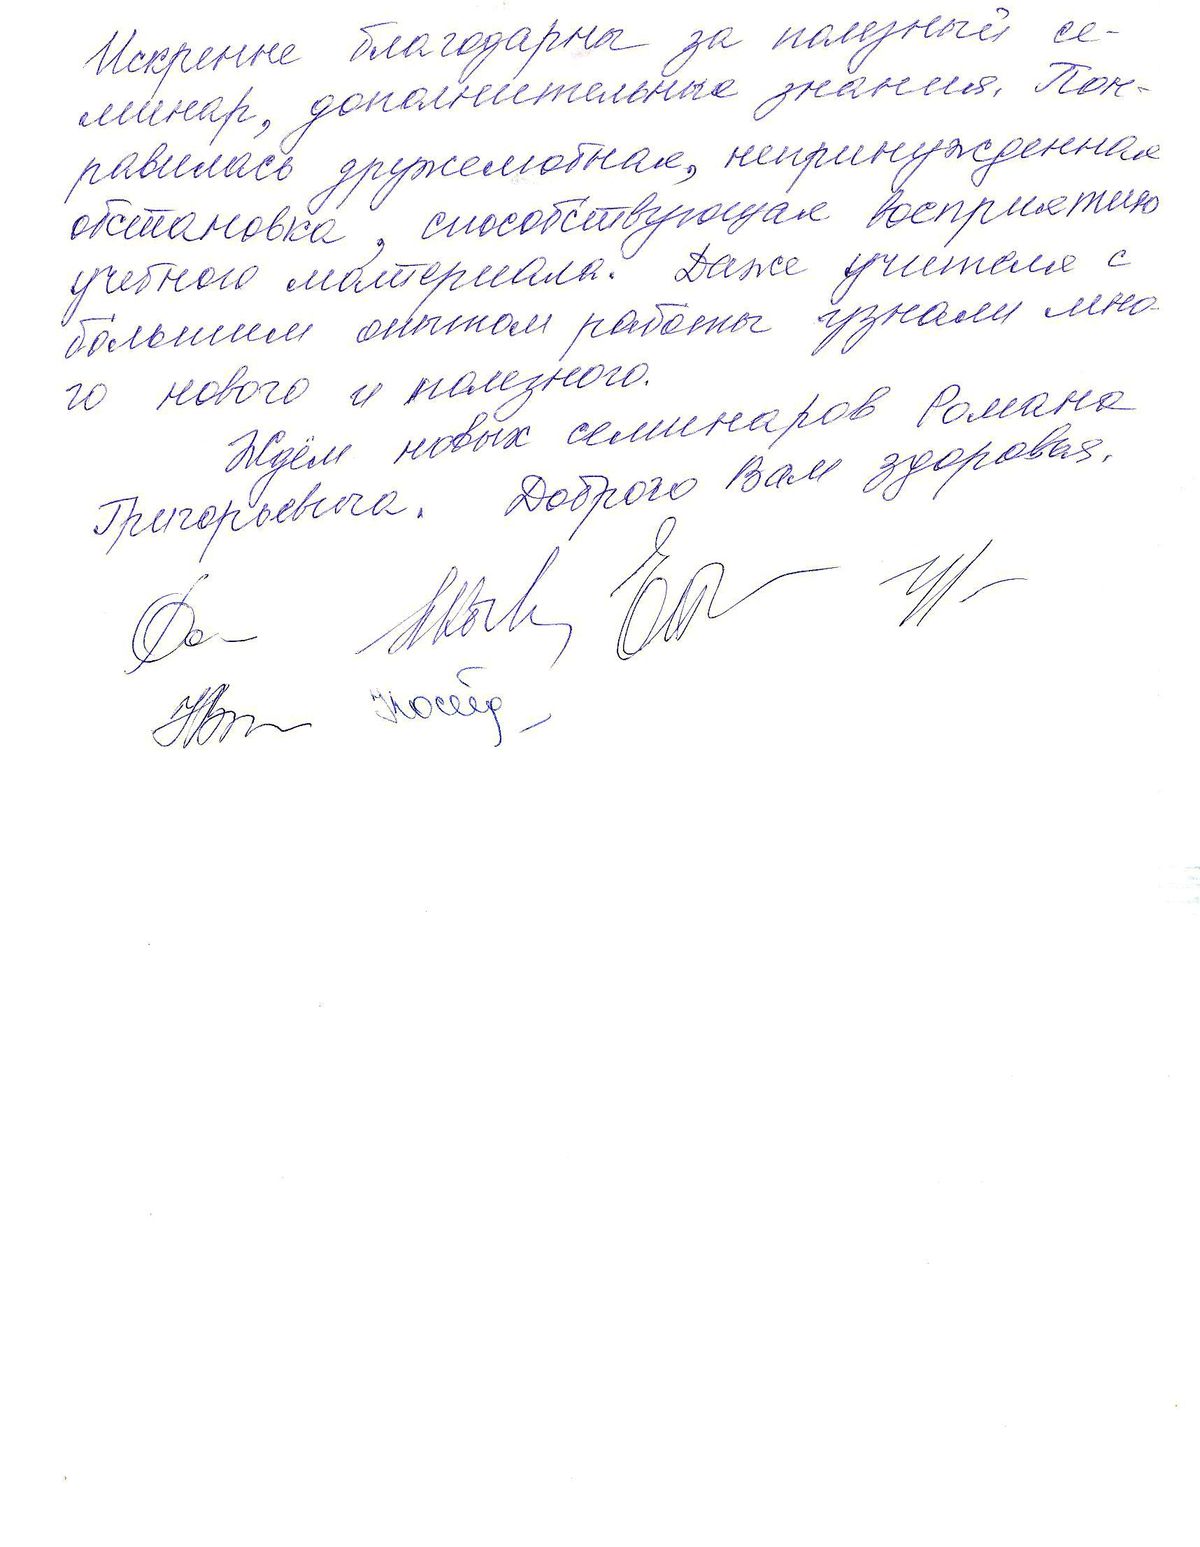 Искренне благодарны за полезный се-
минар, дополнительные знания. Пон-
равилась дружелюбная, непринужденная
обстановка, способствующая восприятию
учебного материала. Даже учителя с
большим опытом работы узнали мно-
го нового и полезного.
Ждём новых семинаров Романа
Григорьевича. Доброго Вам здоровья.